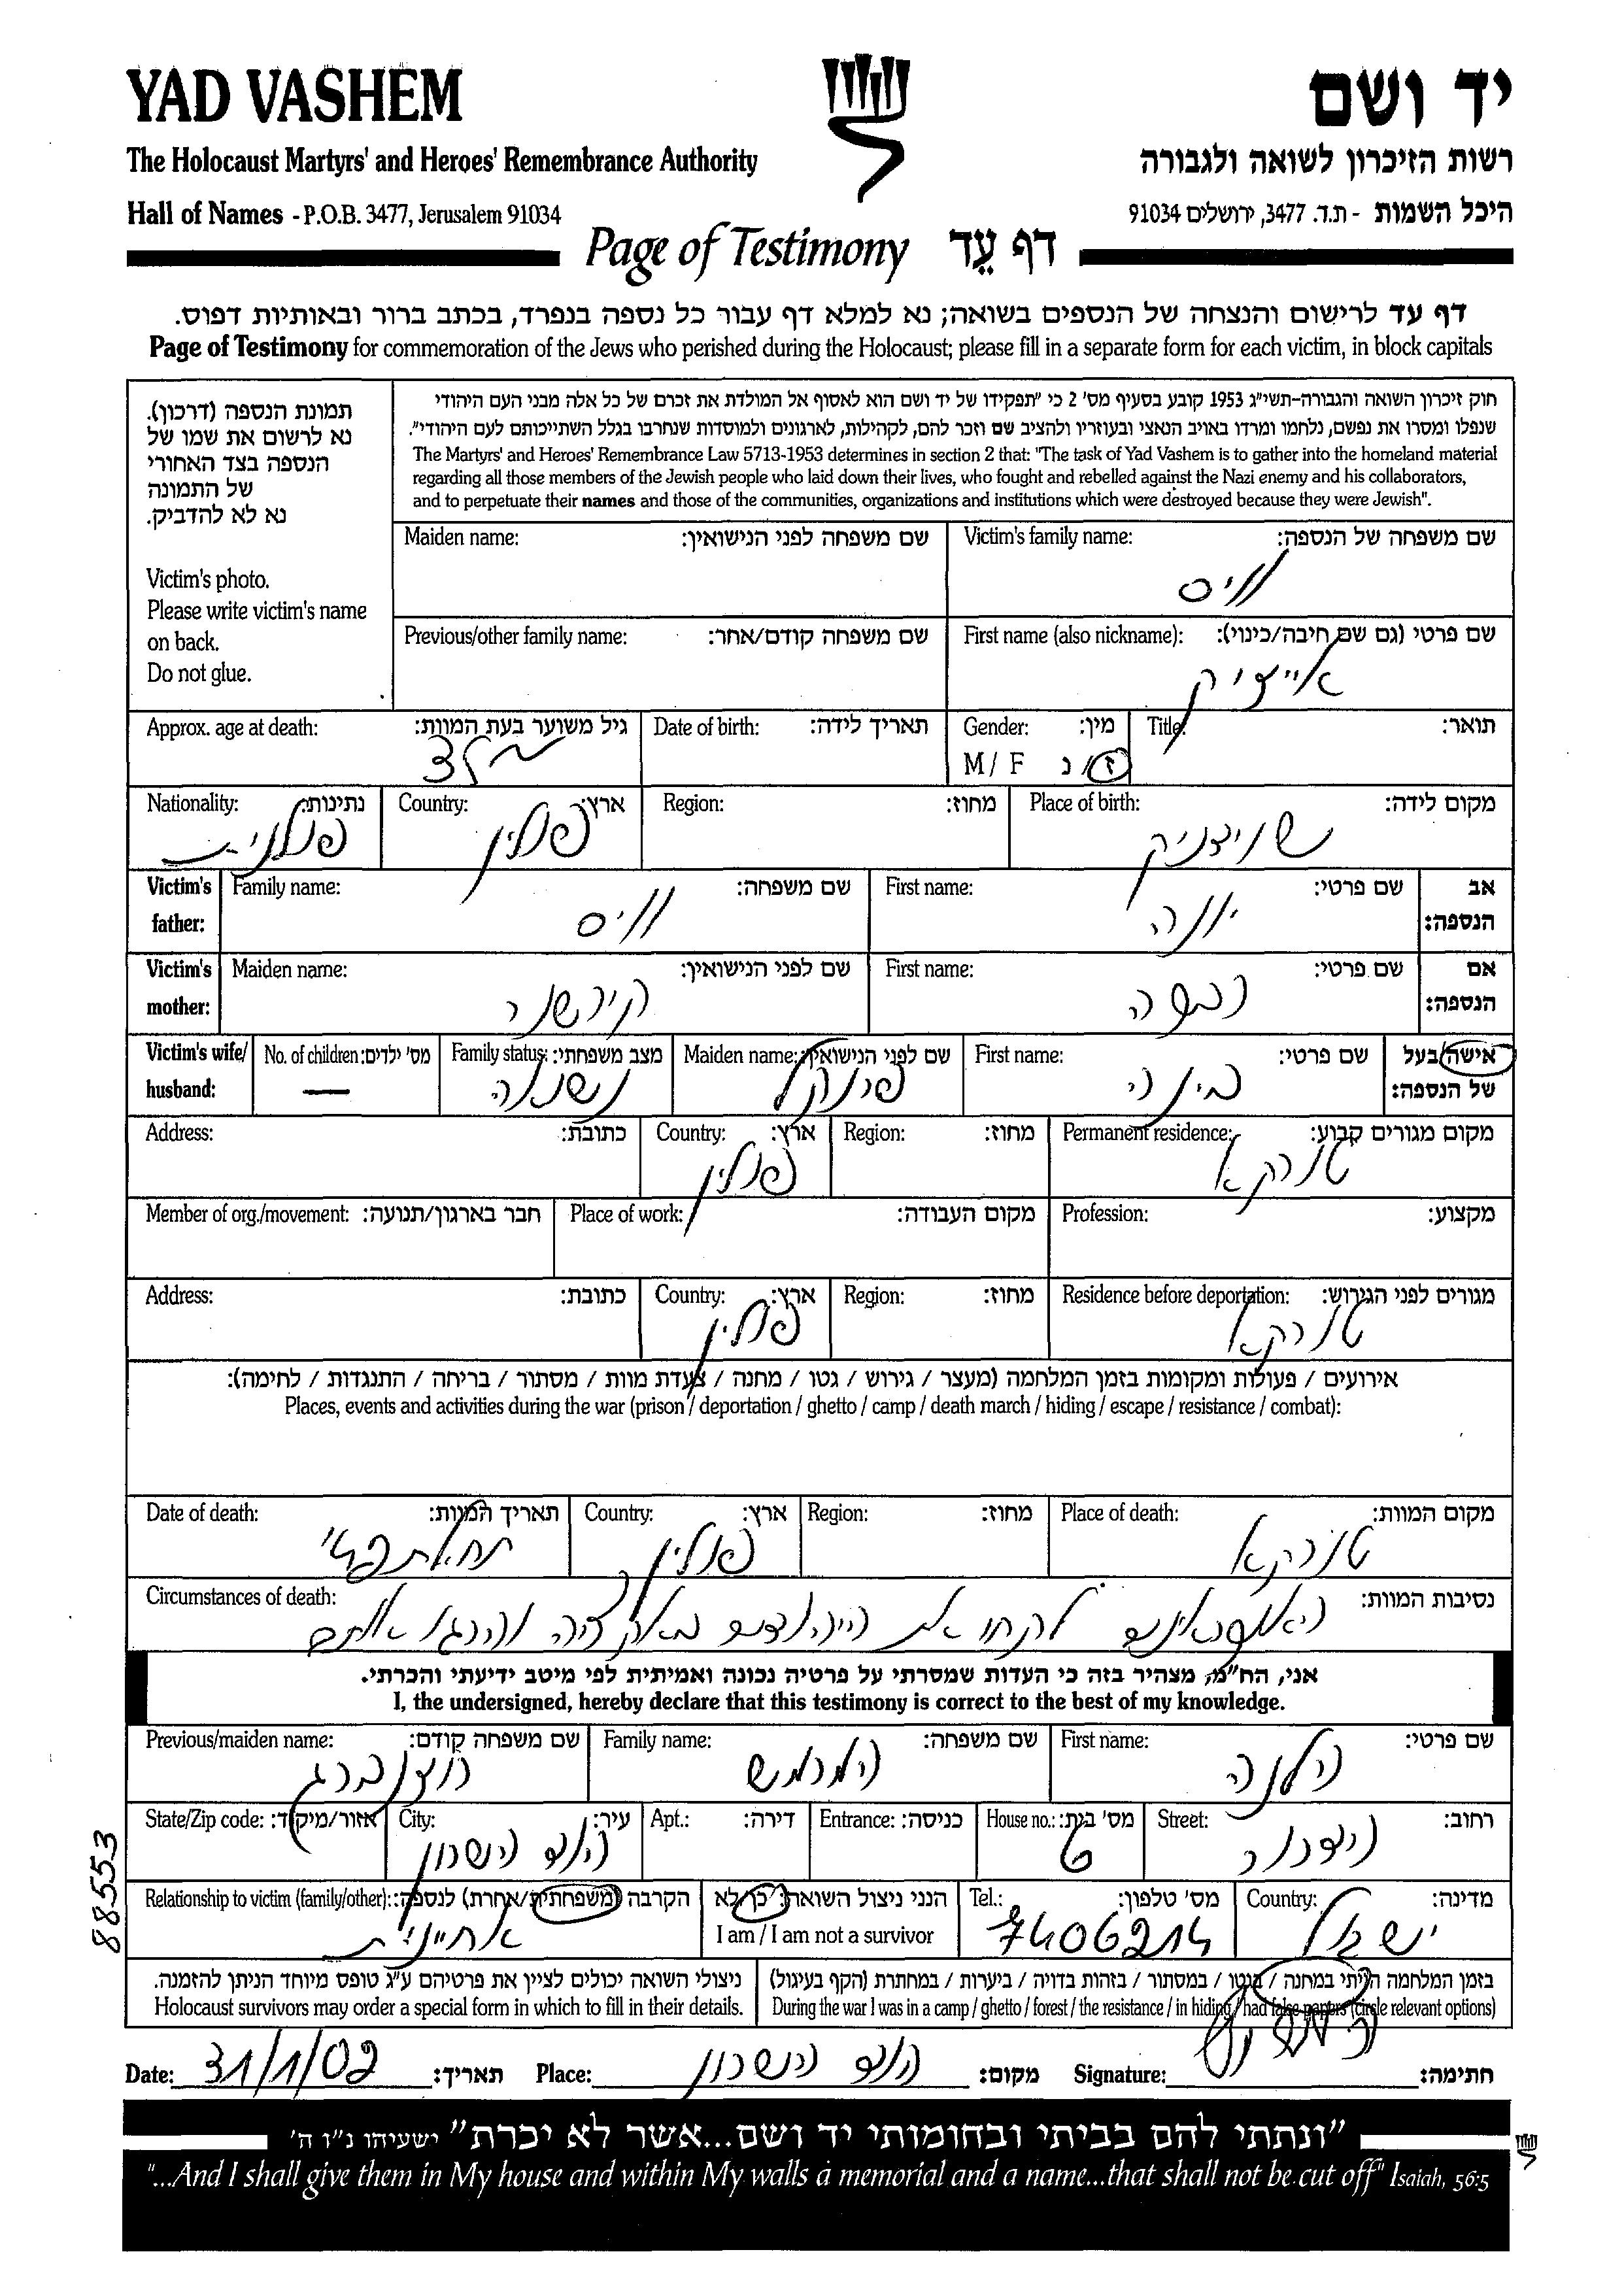 YAD VASHEM
יד ושם
The Holocaust Martyrs' and Heroes' Remembrance Authority
רשות הזיכרון לשואה ולגבורה
Hall of Names - P.O.B. 3477, Jerusalem 91034
היכל השמות - ת.ד. 3477, ירושלים 91034
Page of Testimony דף עֵד
דף עד לרישום והנצחה של הנספים בשואה; נא למלא דף עבור כל נספה בנפרד, בכתב ברור ובאותיות דפוס.
Page of Testimony for commemoration of the Jews who perished during the Holocaust; please fill in a separate form for each victim, in block capitals
תמונת הנספה (דרכון).
נא לרשום את שמו של
הנספה בצד האחורי
של התמונה
נא לא להדביק.
Victim's photo.
Please write victim's name
on back.
Do not glue.
חוק זיכרון השואה והגבורה-תשי"ג 1953 קובע בסעיף מס' 2 כי "תפקידו של יד ושם הוא לאסוף אל המולדת את זכרם של כל אלה מבני העם היהודי
שנפלו ומסרו את נפשם, נלחמו ומרדו באויב הנאצי ובעוזריו ולהציב שם וזכר להם, לקהילות, לארגונים ולמוסדות שנחרבו בגלל השתייכותם לעם היהודי".
The Martyrs' and Heroes' Remembrance Law 5713-1953 determines in section 2 that: "The task of Yad Vashem is to gather into the homeland material
regarding all those members of the Jewish people who laid down their lives, who fought and rebelled against the Nazi enemy and his collaborators,
and to perpetuate their names and those of the communities, organizations and institutions which were destroyed because they were Jewish".
Victim's family name: שם משפחה של הנספה:
ווייס
Maiden name: שם משפחה לפני הנישואין:
First name (also nickname): שם פרטי (גם שם חיבה/כינוי):
אייציק
Previous/other family name: שם משפחה קודם/אחר:
Title: תואר:
Gender: מין:
M / F ז/נ
Date of birth: תאריך לידה:
Approx. age at death: גיל משוער בעת המוות:
Place of birth: מקום לידה:
Region: מחוז:
Country: ארץ:
פולין
Nationality: נתינות:
פולנית
Victim's father: אב הנספה:
First name: שם פרטי:
יונה
Family name: שם משפחה:
ווייס
Victim's mother: אם הנספה:
First name: שם פרטי:
Maiden name: שם לפני הנישואין:
קירשנר
Victim's wife/ husband: אישה/בעל של הנספה:
First name: שם פרטי:
בינה
Maiden name: שם לפני הנישואין:
פרנקל
Family status: מצב משפחתי:
נשואה
No. of children: מס' ילדים:
—
Permanent residence: מקום מגורים קבוע:
טורקא
Region: מחוז:
Country: ארץ:
פולין
Address: כתובת:
Profession: מקצוע:
Place of work: מקום העבודה:
Member of org./movement: חבר בארגון/תנועה:
Residence before deportation: מגורים לפני הגירוש:
טורקא
Region: מחוז:
Country: ארץ:
פולין
Address: כתובת:
אירועים / פעולות ומקומות בזמן המלחמה (מעצר / גירוש / גטו / מחנה / צעדת מוות / מסתור / בריחה / התנגדות / לחימה):
Places, events and activities during the war (prison / deportation / ghetto / camp / death march / hiding / escape / resistance / combat):
Place of death: מקום המוות:
טורקא
Region: מחוז:
Country: ארץ:
פולין
Date of death: תאריך המוות:
Circumstances of death: נסיבות המוות:
לקחו את היהודים באקציה והרגו אותם
אני, הח"מ, מצהיר בזה כי העדות שמסרתי על פרטיה נכונה ואמיתית לפי מיטב ידיעתי והכרתי.
I, the undersigned, hereby declare that this testimony is correct to the best of my knowledge.
First name: שם פרטי:
הלנה
Family name: שם משפחה:
Previous/maiden name: שם משפחה קודם:
רוזנברג
Street: רחוב:
House no.: מס' בית:
6
Entrance: כניסה:
Apt.: דירה:
City: עיר:
הוד השרון
State/Zip code: אזור/מיקוד:
Country: מדינה:
ישראל
Tel.: מס' טלפון:
7406214
הנני ניצול השואה: כן/לא
I am / I am not a survivor
Relationship to victim (family/other): הקרבה (משפחתית/אחרת) לנספה:
אחיינית
בזמן המלחמה הייתי במחנה / בגטו / במסתור / בזהות בדויה / ביערות / במחתרת (הקף בעיגול)
During the war I was in a camp / ghetto / forest / the resistance / in hiding / had false papers (circle relevant options)
ניצולי השואה יכולים לציין את פרטיהם ע"ג טופס מיוחד הניתן להזמנה.
Holocaust survivors may order a special form in which to fill in their details.
Date: 31/1/02 תאריך: Place: הוד השרון מקום: Signature: חתימה:
88553
"ונתתי להם בביתי ובחומותי יד ושם...אשר לא יכרת" ישעיהו נ"ו ה'
"...And I shall give them in My house and within My walls a memorial and a name...that shall not be cut off" Isaiah, 56:5